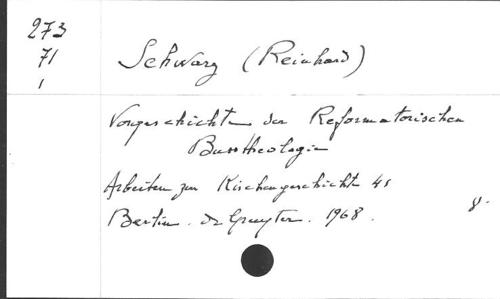 273
71
1
Schwarz (Reinhard)
Vorgeschichte der Reformatorischen
Busstheologie
Arbeiten zur Kirchengeschichte 41
Berlin. De Gruyter. 1968.
8°